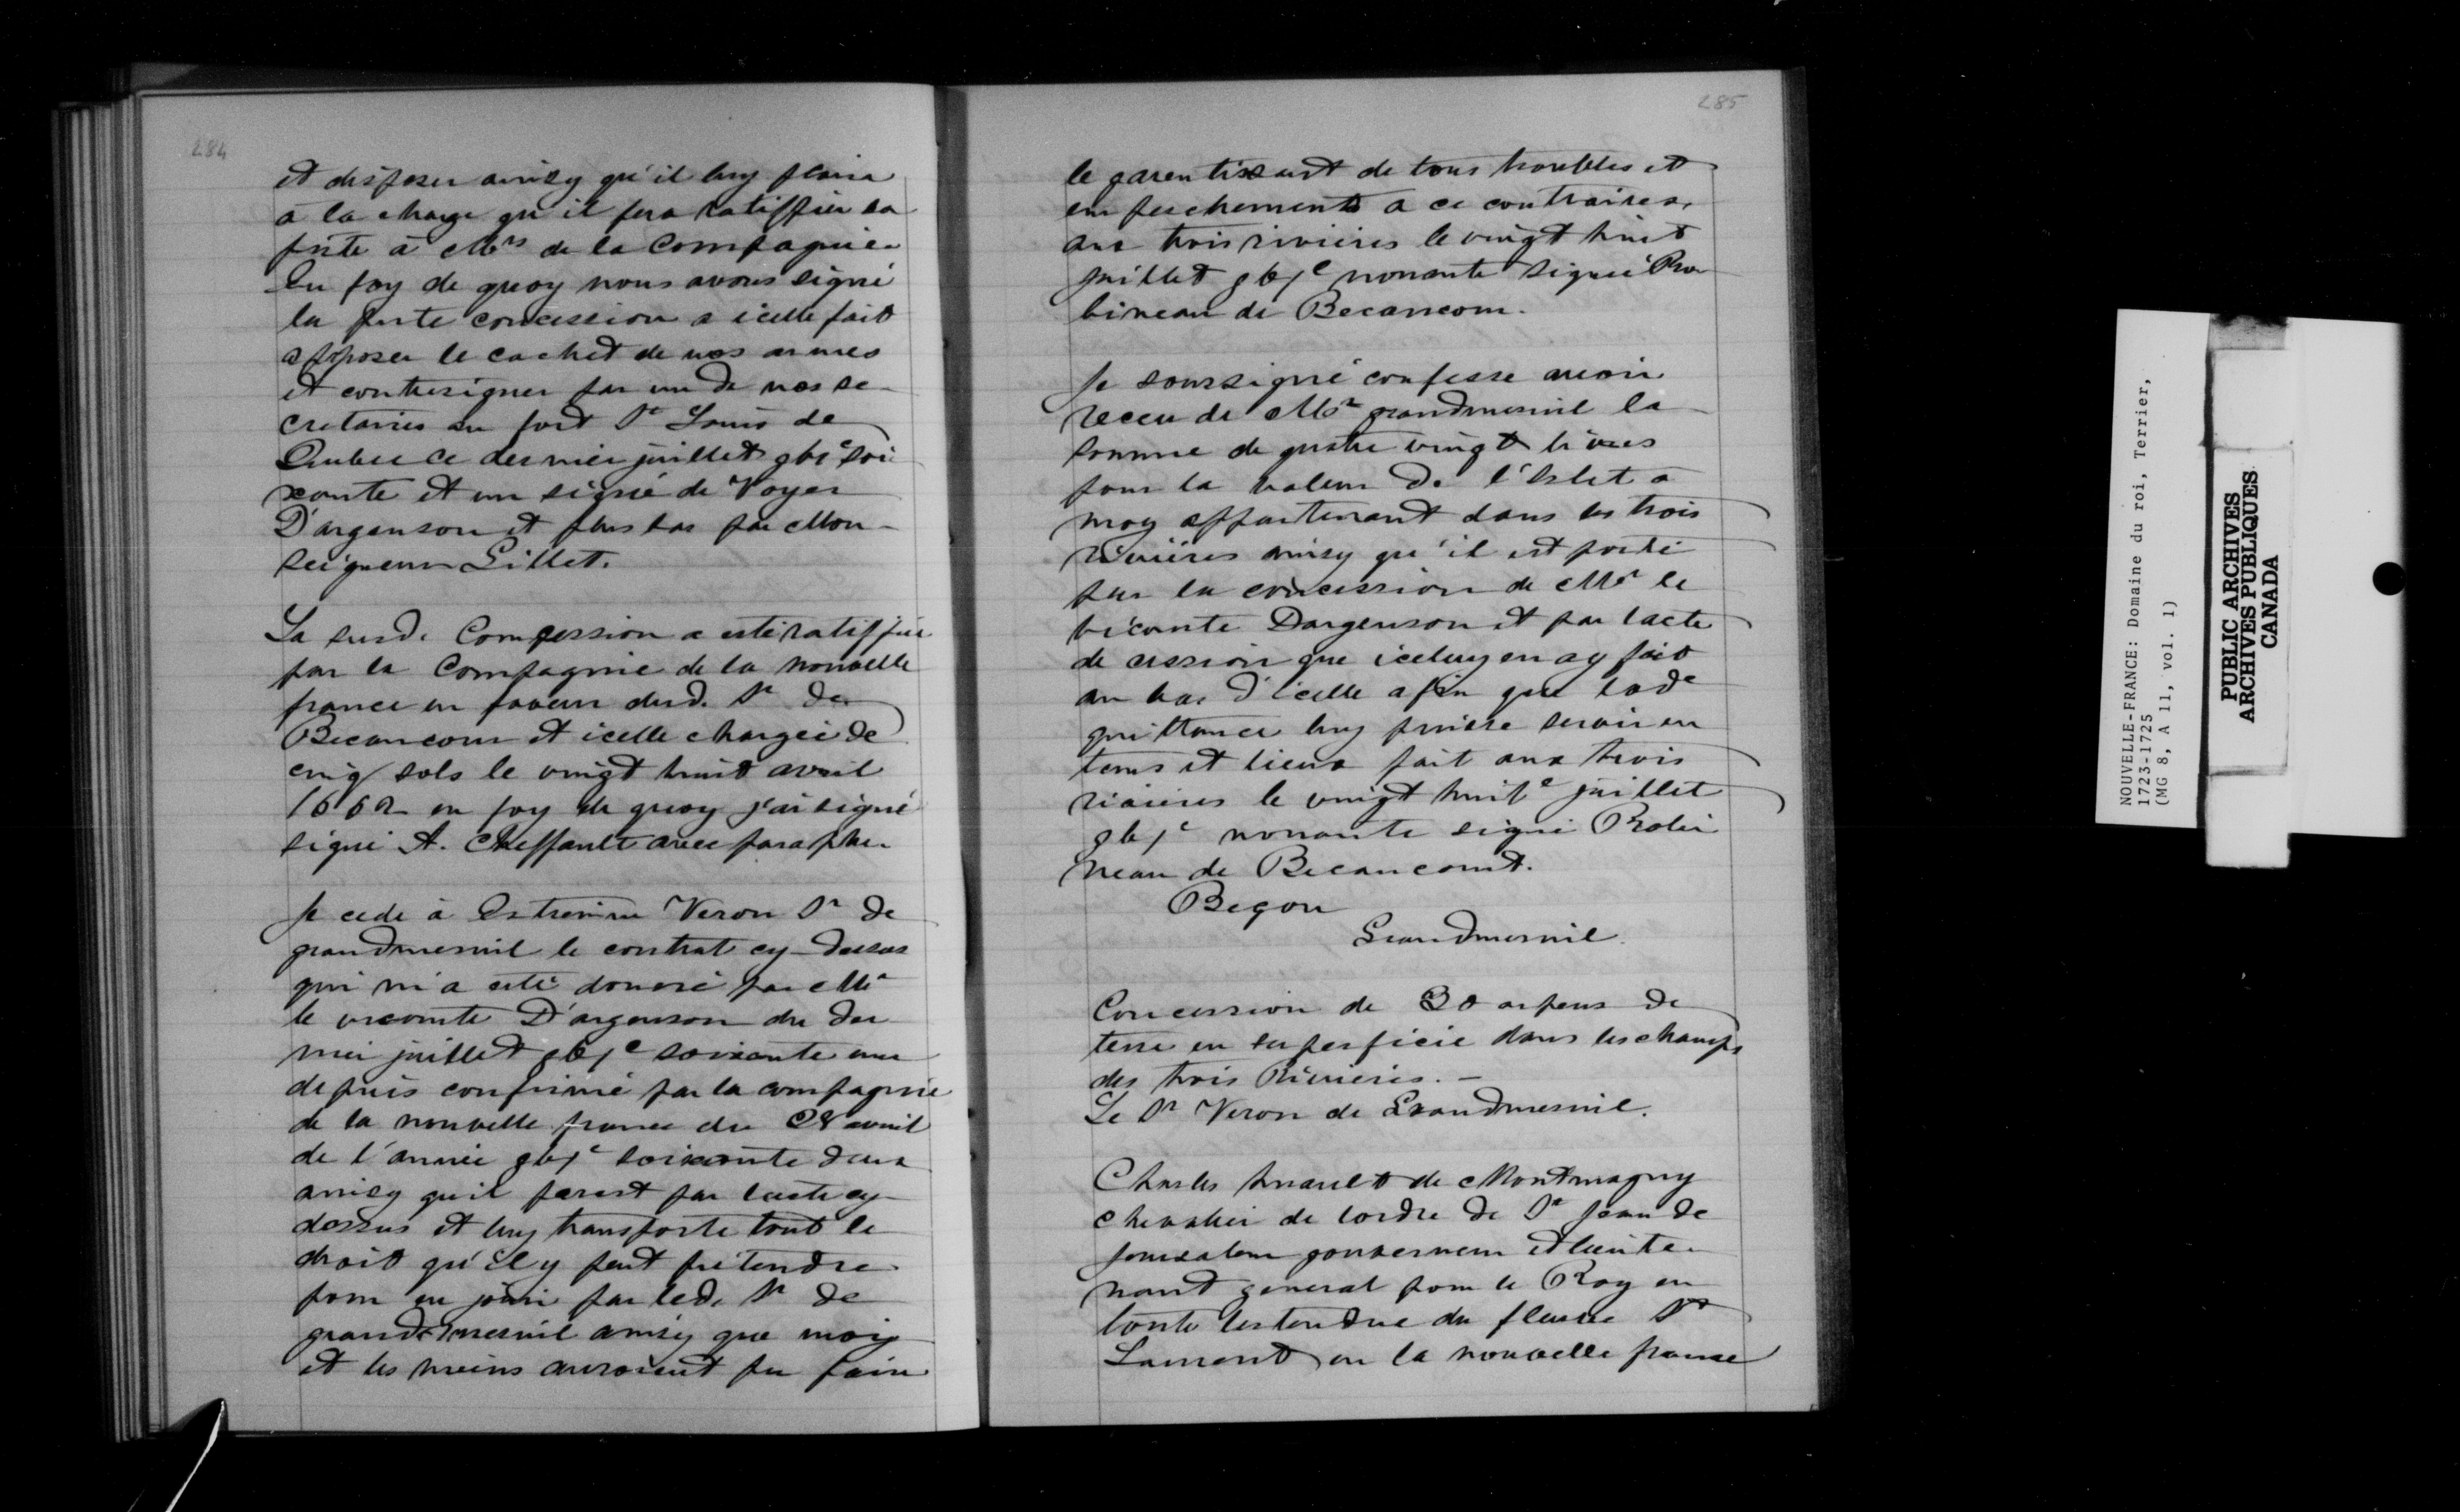 284
et disposer ainsy qu'il luy plaira
a la charge qu'il fera ratiffier la
pnte à Mrs de la Compagnie
En foy de quoy nous avons signé
la pnte concession a icelle fait
apposer le cachet de nos armes
et contresigner par un de nos se-
cretaires au fort St Louis de
Quebec ce dernier juillet gbic soi
xante et un signé de Voyer
D'argenson et plus bas par Mon-
seigneur Gillet.
La susd. Concession a esté ratiffiée
par la Compagnie de la nouvelle
france en faveur dud. Sr de
Becancour et icelle chargée de
cinq sols le vingt huit avril
1662 en foy de quoy j'ai signé
signé A. Cheffault avec paraphe.
Je cede à Estienne Veron Sr de
grandmesnil le contrat cy-dessus
qui m'a esté donné par Mr
le vicomte D'argenson du der
nier juillet gbjc soixante un
depuis confirmé par la compagnie
de la nouvelle france du 28 avril
de l'année gbjc soixante deux
ainsy qu'il paroist par l'acte cy
dessus et luy transporte tout le
droit qu'il y peut pretendre
pour en jouir par led. Sr de
grandmesnil ainsy que moy
et les miens auroient pu faire
285
le garentissant de tous troubles et
empeschements a ce contraires.
aux trois rivieres le vingt huit
juillet gbjc nonante signé Ro
bineau de Becancour.
Je soussigné confesse avoir
receu de Mr grandmesnil la
somme de quatre vingt livres
pour la valeur de l'Islet a
moy appartenant dans les trois
rivières ainsy qu'il est porté
par la concession de Mr le
vicomte Dargenson et par lacte
de cession que iceluy en ay fait
au bas d'icelle afin que lade
quittance luy puisse servir en
tems et lieux fait aux trois
rivieres le vingt huite juillet
gbjc nonante signé Robi
neau de Becancourt.
Begon
Grandmesnil.
Concession de 30 arpens de
terre en superficie dans les champs
des trois Rivieres. -
Le Sr Veron de Grandmesnil.
Charles huault de Montmagny
chevalier de lordre de St Jean de
Jerusalem gouverneur et lieute-
nant general pour le Roy en
toute lestendue du fleuve St
Laurent en la nouvelle france
NOUVELLE-FRANCE: Domaine du roi, Terrier,
1723-1725
(MG 8, A 11, vol. 1)
PUBLIC ARCHIVES
ARCHIVES PUBLIQUES
CANADA